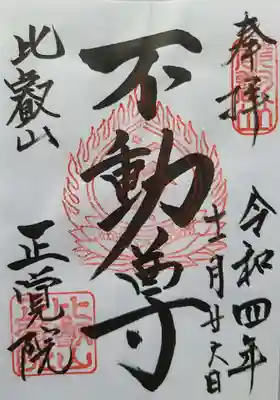 奉拝
令和四年
十一月廿六日
不動尊
比叡山
正覚院